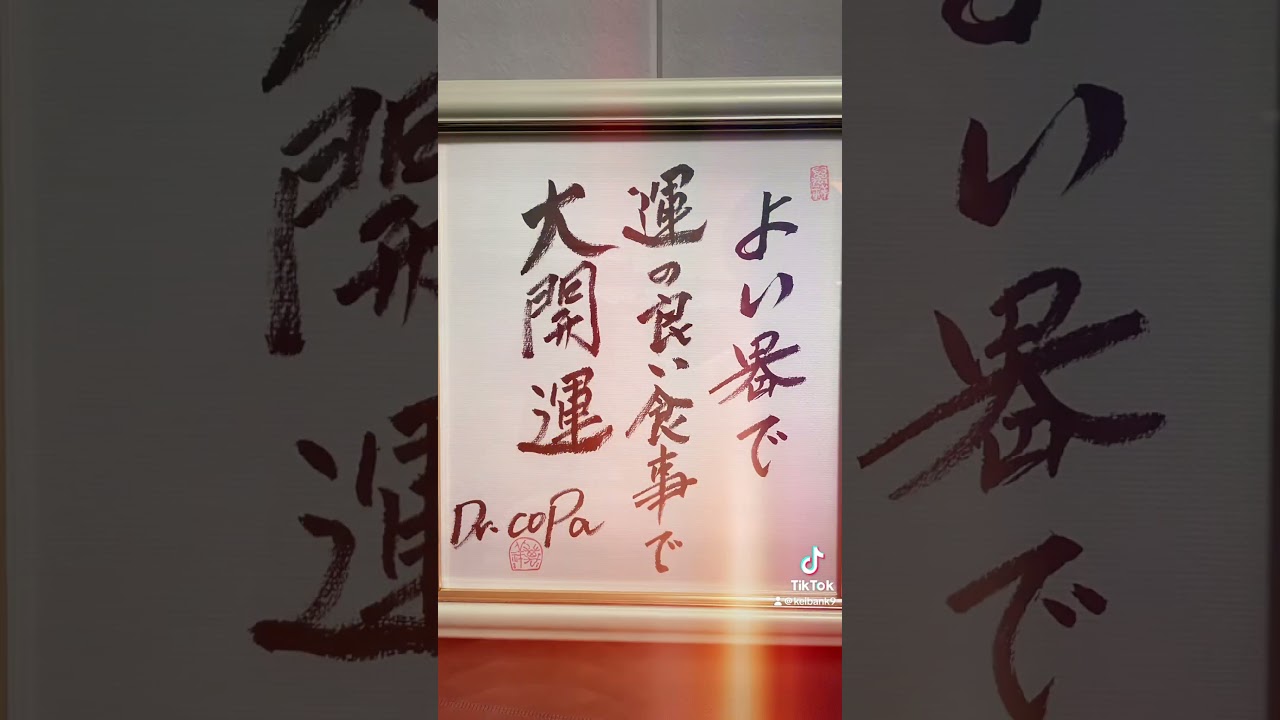 よい器で
運の良い食事で
大開運
Dr. coPa
TikTok
@keibank9